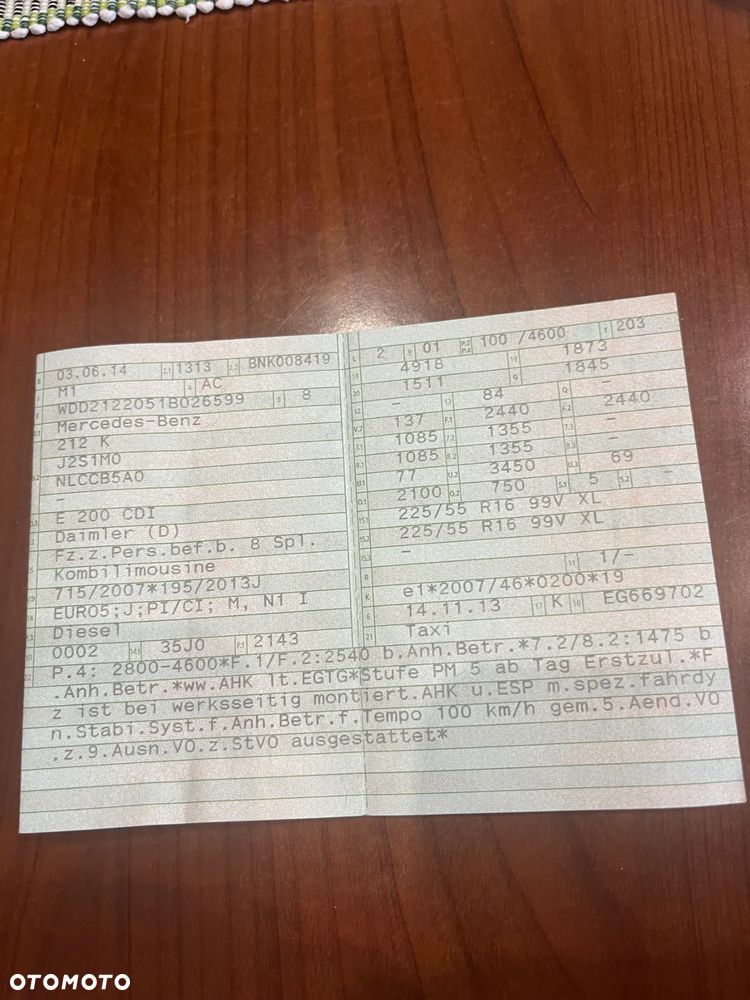 B 03.06.14 2.1 1313 2.2 BNK008419
J M1 4 AC
E WDD2122051B026599 3 8
D.1 Mercedes-Benz
212 K
D.2 J2S1M0
NLCCB5A0
–
D.3 E 200 CDI
2 Daimler (D)
5 Fz.z.Pers.bef.b. 8 Spl.
Kombilimousine
715/2007*195/2013J
14 EURO5;J;PI/CI; M, N1 I
P.3 Diesel
10 0002 14.1 35J0 P.1 2143
L 2 9 01 P.2 P.4 100 /4600 T 203
18 4918 19 1873
20 1511 G 1845
12 – 13 84 Q –
V.7 137 F.1 2440 F.2 2440
7.1 1085 7.2 1355 7.3 –
8.1 1085 8.2 1355 8.3 –
U.1 77 U.2 3450 U.3 69
O.1 2100 O.2 750 S.1 5 S.2 –
15.1 225/55 R16 99V XL
15.2 225/55 R16 99V XL
15.3 –
R 11 1/-
K e1*2007/46*0200*19
6 14.11.13 17 K 16 EG669702
21 Taxi
22 P.4: 2800-4600*F.1/F.2:2540 b.Anh.Betr.*7.2/8.2:1475 b
.Anh.Betr.*ww.AHK lt.EGTG*Stufe PM 5 ab Tag Erstzul.*F
z ist bei werksseitig montiert.AHK u.ESP m.spez.fahrdy
n.Stabi.Syst.f.Anh.Betr.f.Tempo 100 km/h gem.5.Aend.VO
.z.9.Ausn.VO.z.StVO ausgestattet*
OTOMOTO